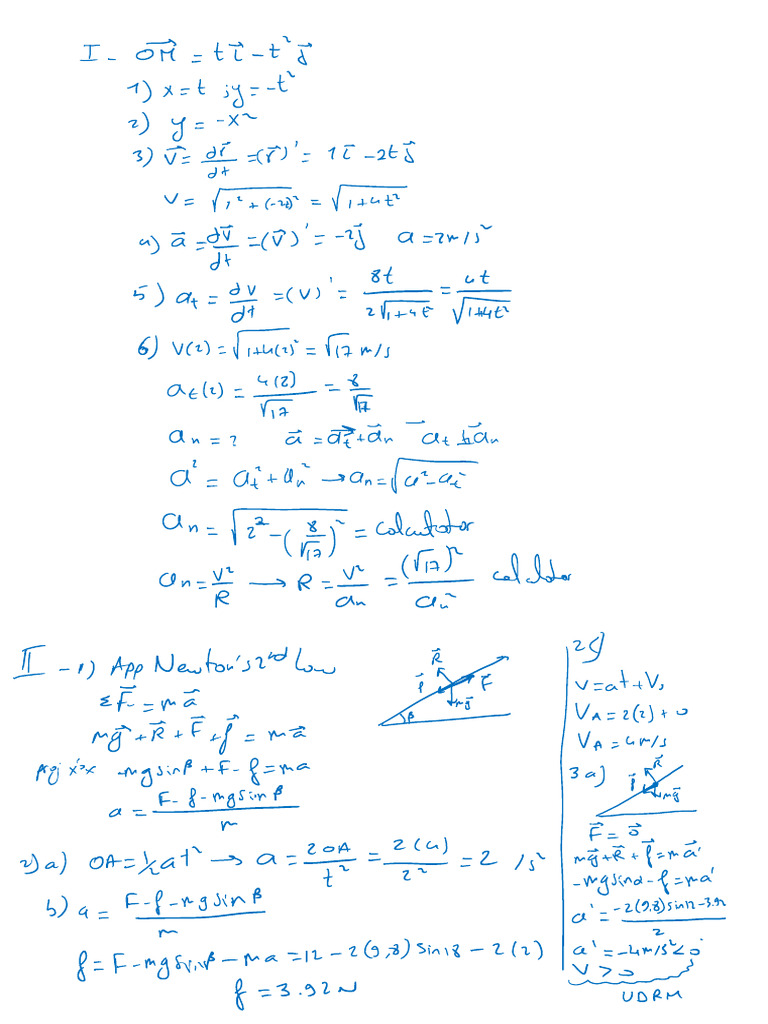 I - OM = t i - t² j
1) x = t ; y = -t²
2) y = -x²
3) V = dr/dt = (r)' = 1i - 2t j
V = √(1² + (-2t)²) = √(1+4t²)
4) a = dV/dt = (V)' = -2j a = 2m/s²
5) a_t = dv/dt = (v)' = 8t/(2√(1+4t)) = 4t/√(1+4t²)
6) V(2) = √(1+4(2)²) = √17 m/s
a_t(2) = 4(2)/√17 = 8/√17
a_n = ? a = a_t + a_n a_t ⊥ a_n
a² = a_t² + a_n² → a_n = √(a² - a_t²)
a_n = √(2² - (8/√17)²) = calculator
a_n = V²/R → R = V²/a_n = (√17)²/a_n calculator
II - 1) App Newton's 2nd law
ΣF = ma
mg + R + F + f = ma
Proj x'x -mg sin β + F - f = ma
a = (F - f - mg sin β)/m
R
f F
mg
β
2) a) OA = ½at² → a = 2OA/t² = 2(4)/2² = 2 /s²
b) a = (F - f - mg sin β)/m
f = F - mg sin β - ma = 12 - 2(9,8) sin 18 - 2(2)
f = 3.92N
2c)
V = at + V₀
V_A = 2(2) + 0
V_A = 4m/s
3 a)
R
f mg
F = 0
mg + R + f = ma'
-mg sin α - f = ma'
a' = (-2(9,8) sin 12 - 3.92)/2
a' = -4m/s² < 0
V > 0
UDRM